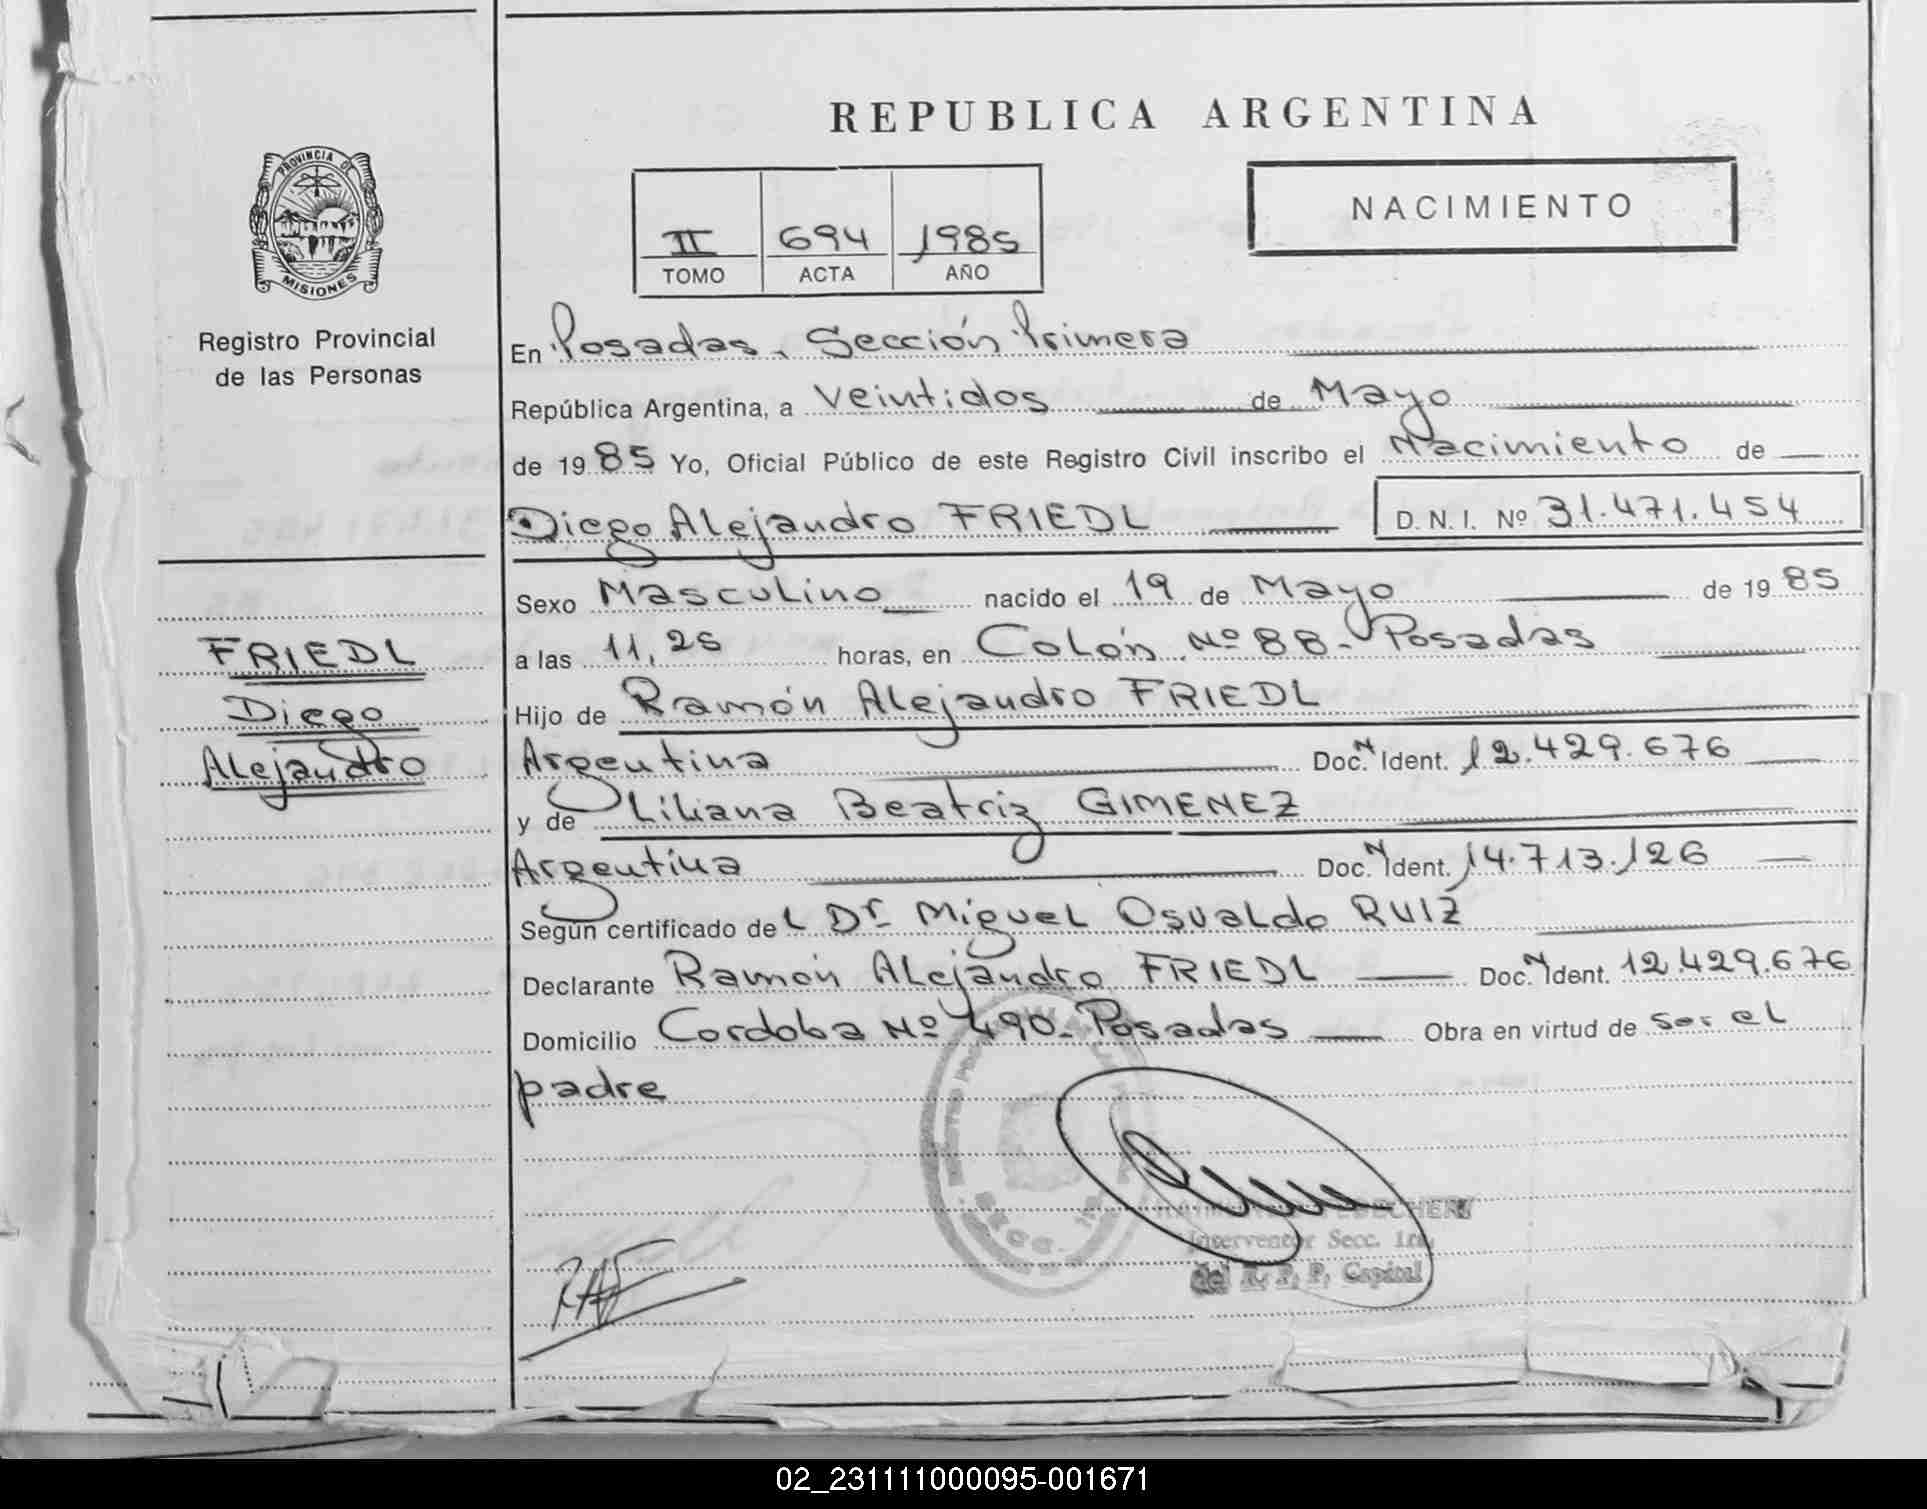 REPUBLICA ARGENTINA
PROVINCIA DE
MISIONES
Registro Provincial
de las Personas
II 694 1985
TOMO ACTA AÑO
NACIMIENTO
En Posadas. Sección Primera
República Argentina, a veintidos de Mayo
de 1985 Yo, Oficial Público de este Registro Civil inscribo el Nacimiento de
Diego Alejandro FRIEDL D. N. I. Nº 31.471.454
Sexo Masculino nacido el 19 de Mayo de 1985
a las 11,25 horas, en Colón Nº 88- Posadas
Hijo de Ramón Alejandro FRIEDL
Argentina Doc. N Ident. 12.429.676
y de Liliana Beatriz GIMENEZ
Argentina Doc. N Ident. 14.713.126
Según certificado del Dr. Miguel Osvaldo RUIZ
Declarante Ramón Alejandro FRIEDL Doc. N Ident. 12.429.676
Domicilio Cordoba Nº 490- Posadas Obra en virtud de ser el
padre
FRIEDL
Diego
Alejandro
Interventor Secc. 1ra.
del R. P. P. Capital
RAF
02_231111000095-001671